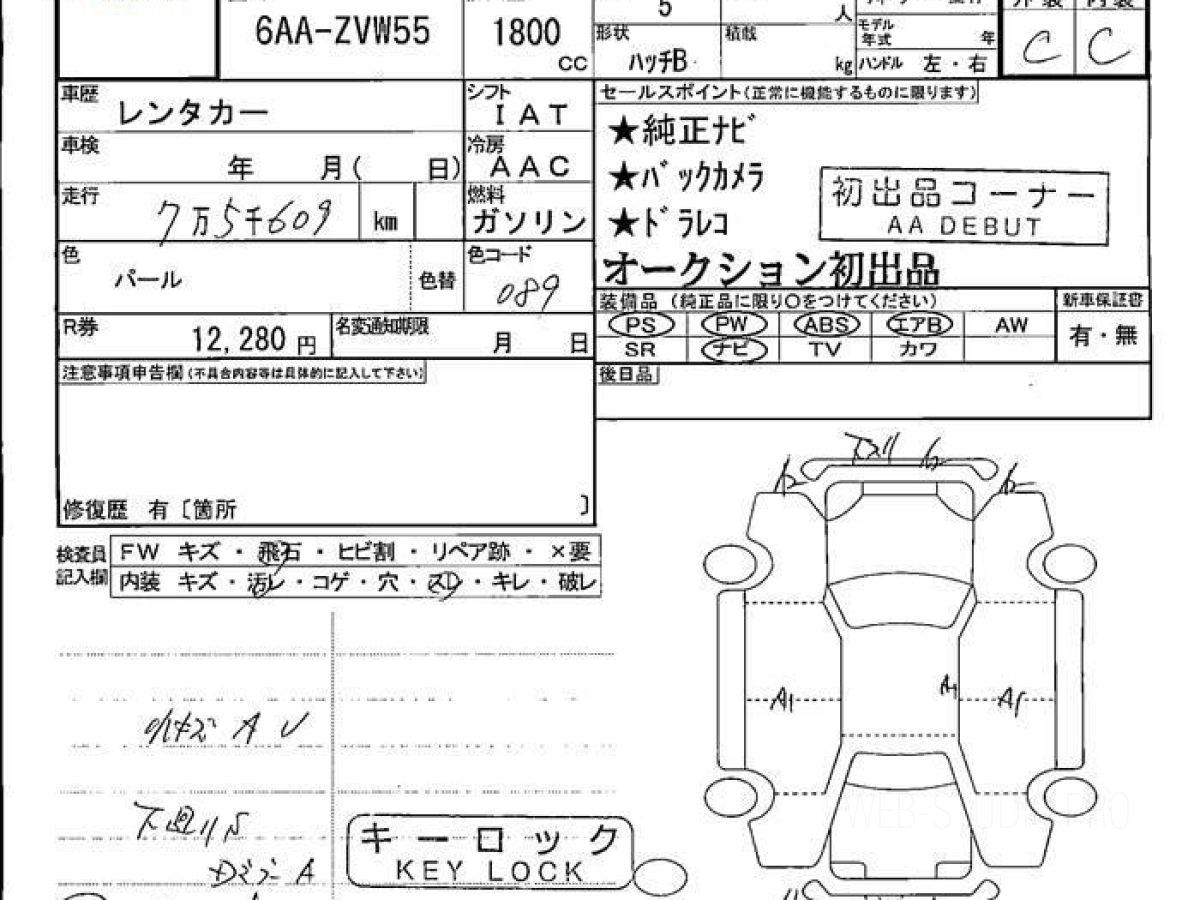 5 人
6AA-ZVW55 1800 CC
形状 ハッチB 積載 kg
モデル年式 年
ハンドル 左・右
C C
車歴 レンタカー
シフト IAT
車検 年 月( 日)
冷房 AAC
走行 7万5千609 km
燃料 ガソリン
色 パール 色替
色コード 089
R券 12,280 円
名変通知期限 月 日
セールスポイント(正常に機能するものに限ります)
★純正ナビ
★バックカメラ
★ドラレコ
オークション初出品
初出品コーナー
AA DEBUT
装備品 (純正品に限り○をつけてください) 新車保証書
PS PW ABS エアB AW 有・無
SR ナビ TV カワ
後日品
注意事項申告欄(不具合内容等は具体的に記入して下さい)
修復歴 有〔箇所 〕
検査員記入欄
FW キズ・飛石・ヒビ割・リペア跡・×要
内装 キズ・汚レ・コゲ・穴・スレ・キレ・破レ
A1 A1 A1
キーロック
KEY LOCK